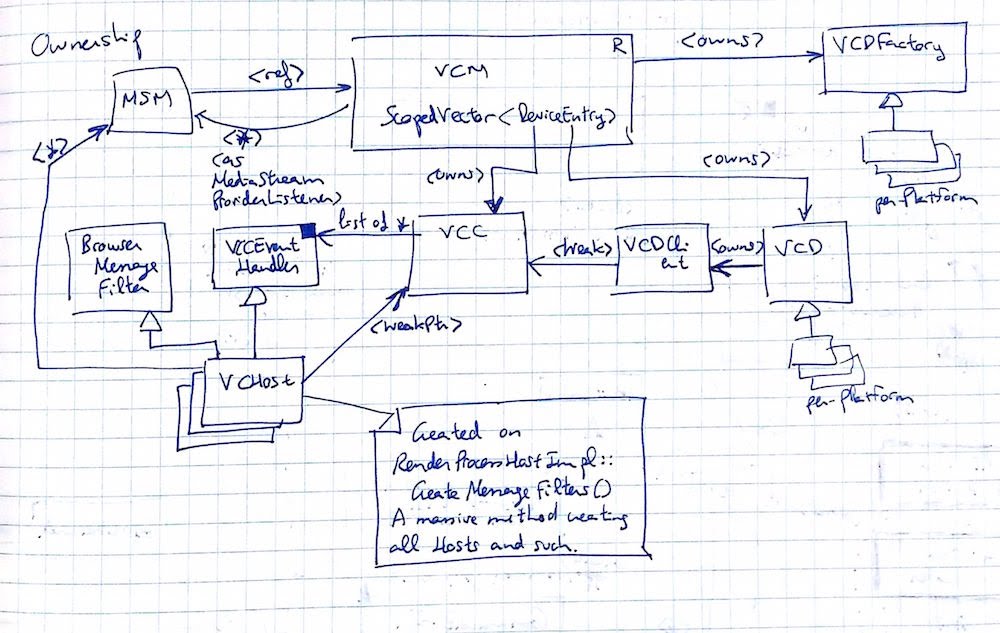 Ownership
MSM
<ref>
VCM
R
ScopedVector<DeviceEntry>
<owns>
VCDFactory
per-Platform
<*>
<*>
(as
MediaStream
ProviderListener)
<owns>
<owns>
Browser
Message
Filter
VCEvent
Handler
list of *
VCC
<weak>
VCDCli
ent
<owns>
VCD
per-platform
<weakPtr>
VCHost
Created on
RenderProcessHostImpl::
Create Message Filters()
A massive method creating
all Hosts and such.